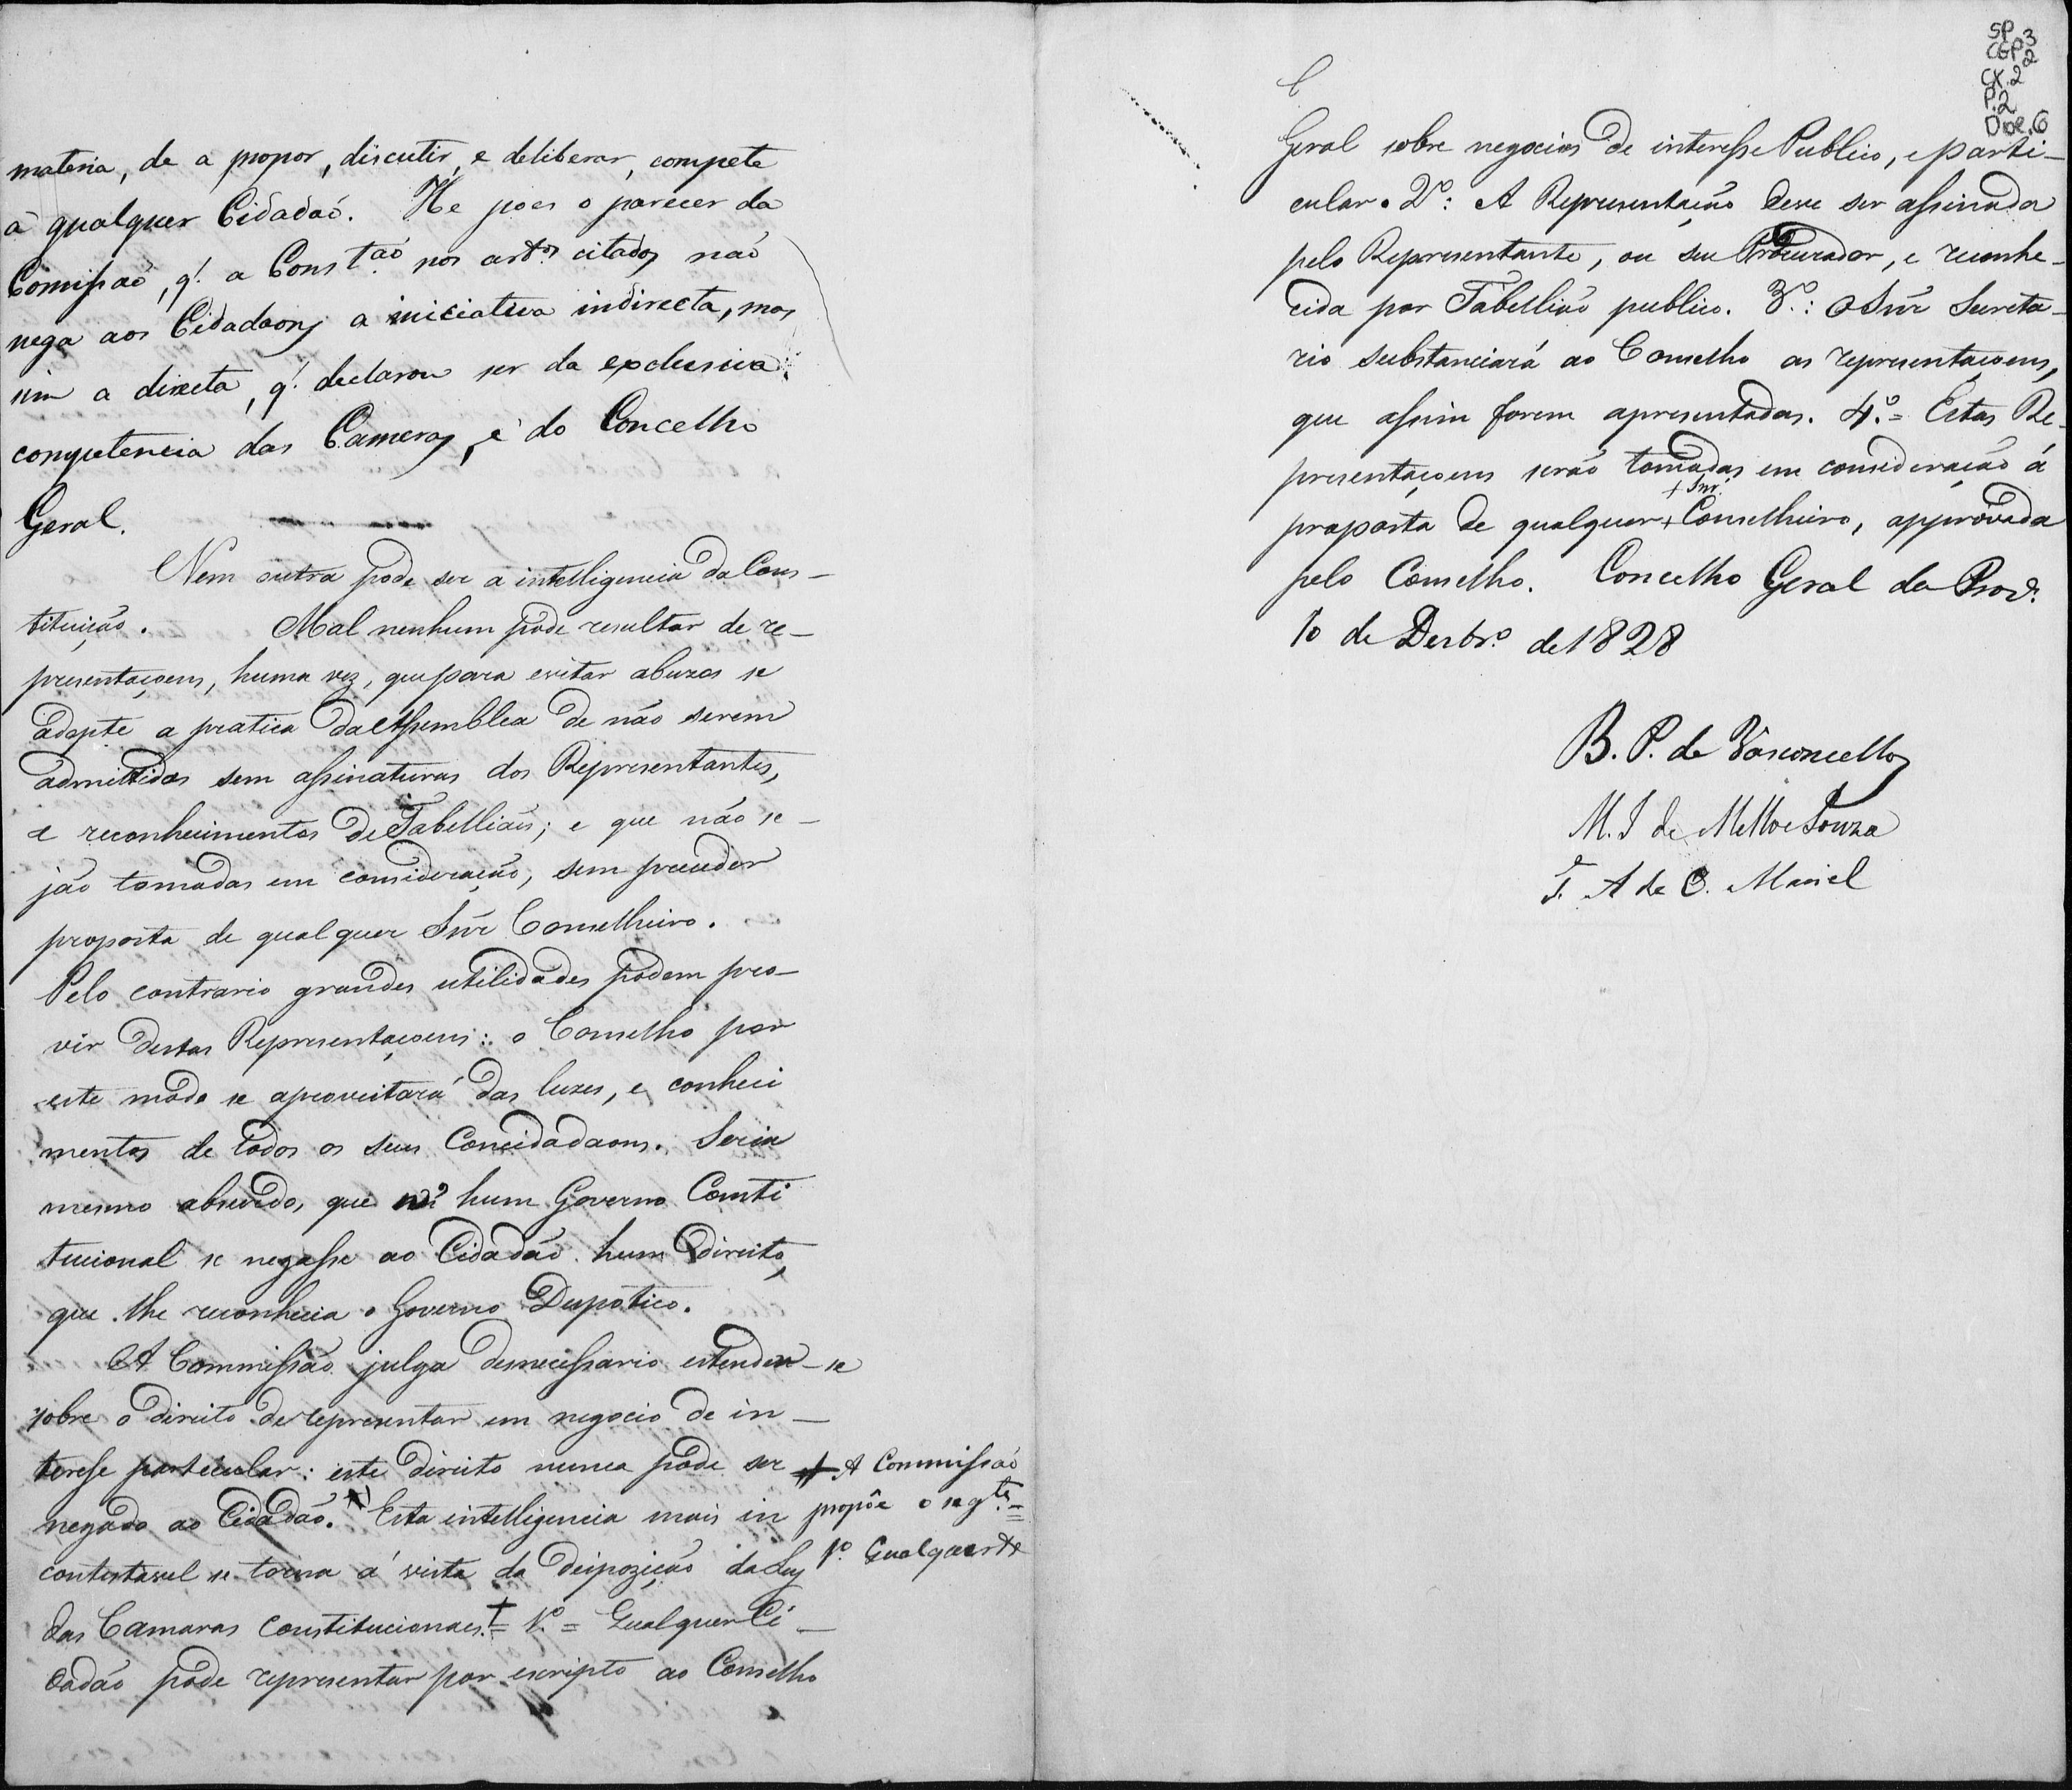 materia, de a propor, discutir, e deliberar, compete
a qualquer Cidadaõ. He pois o parecer da
Comissaõ, q.' a Const.ão nos art.os citados naõ
nega aos Cidadaons a iniciativa indirecta, mas
sim a directa, q.' declarou ser da exclusiva
competencia das Cameras, e do Concelho
Geral.
Nem outra pode ser a intelligencia da Cons-
tituição. Mal nenhum pode resultar de re-
presentaçoens, huma vez, que para evitar abuzos se
adopte a pratica da Assemblea de não serem
admittidas sem assinaturas dos Representantes,
e reconhecimentos de Tabelliãis; e que não se-
jão tomadas em consideração, sem preceder
proposta de qualquer Snr̃ Conselheiro.
Pelo contrario grandes utilidades podem pro-
vir destas Representaçoens: o Conselho por
este modo se aproveitará das luzes, e conheci
mentos de todos os seus Concidadaons. Seria
mesmo absurdo, que hum Governo Consti
tucional se negasse ao Cidadão hum Direito,
que lhe reconhecia o Governo Despotico.
A Commissão julga desnecessario estender-se
sobre o direito de representar em negocio de in-
teresse particular: este direito nunca pode ser
negado ao Cidadão. Esta intelligencia mais in
contestavel se torna á vista da Dispozição da Ley
das Camaras Constitucionaes.+= 1.º = Qualquer Ci-
dadão póde representar por escripto ao Conselho
+ A Commissaõ
propõe o seg.te =
1.º Qualquer &
SP 3
CGP 2
CX. 2
P. 2
Doc. 6
Geral sobre negocios de interesse Publico, e parti-
cular. 2.º: A Representação deve ser assinada
pelo Representante, ou seu Procurador, e reconhe-
cida por Tabellião publico. 3.º: O Snr̃ Secreta-
rio substanciará ao Conselho as representaçoens,
que assim forem apresentadas. 4.º = Estas Re-
presentaçoens serão tomadas em consideração á
+ Snr.
proposta de qualquer + Conselheiro, approvada
pelo Conselho. Concelho Geral da Prov.
10 de Dezbr.º de 1828
B. P. de Vasconcellos
M. I de Mello e Souza
T. A de O. Maciel